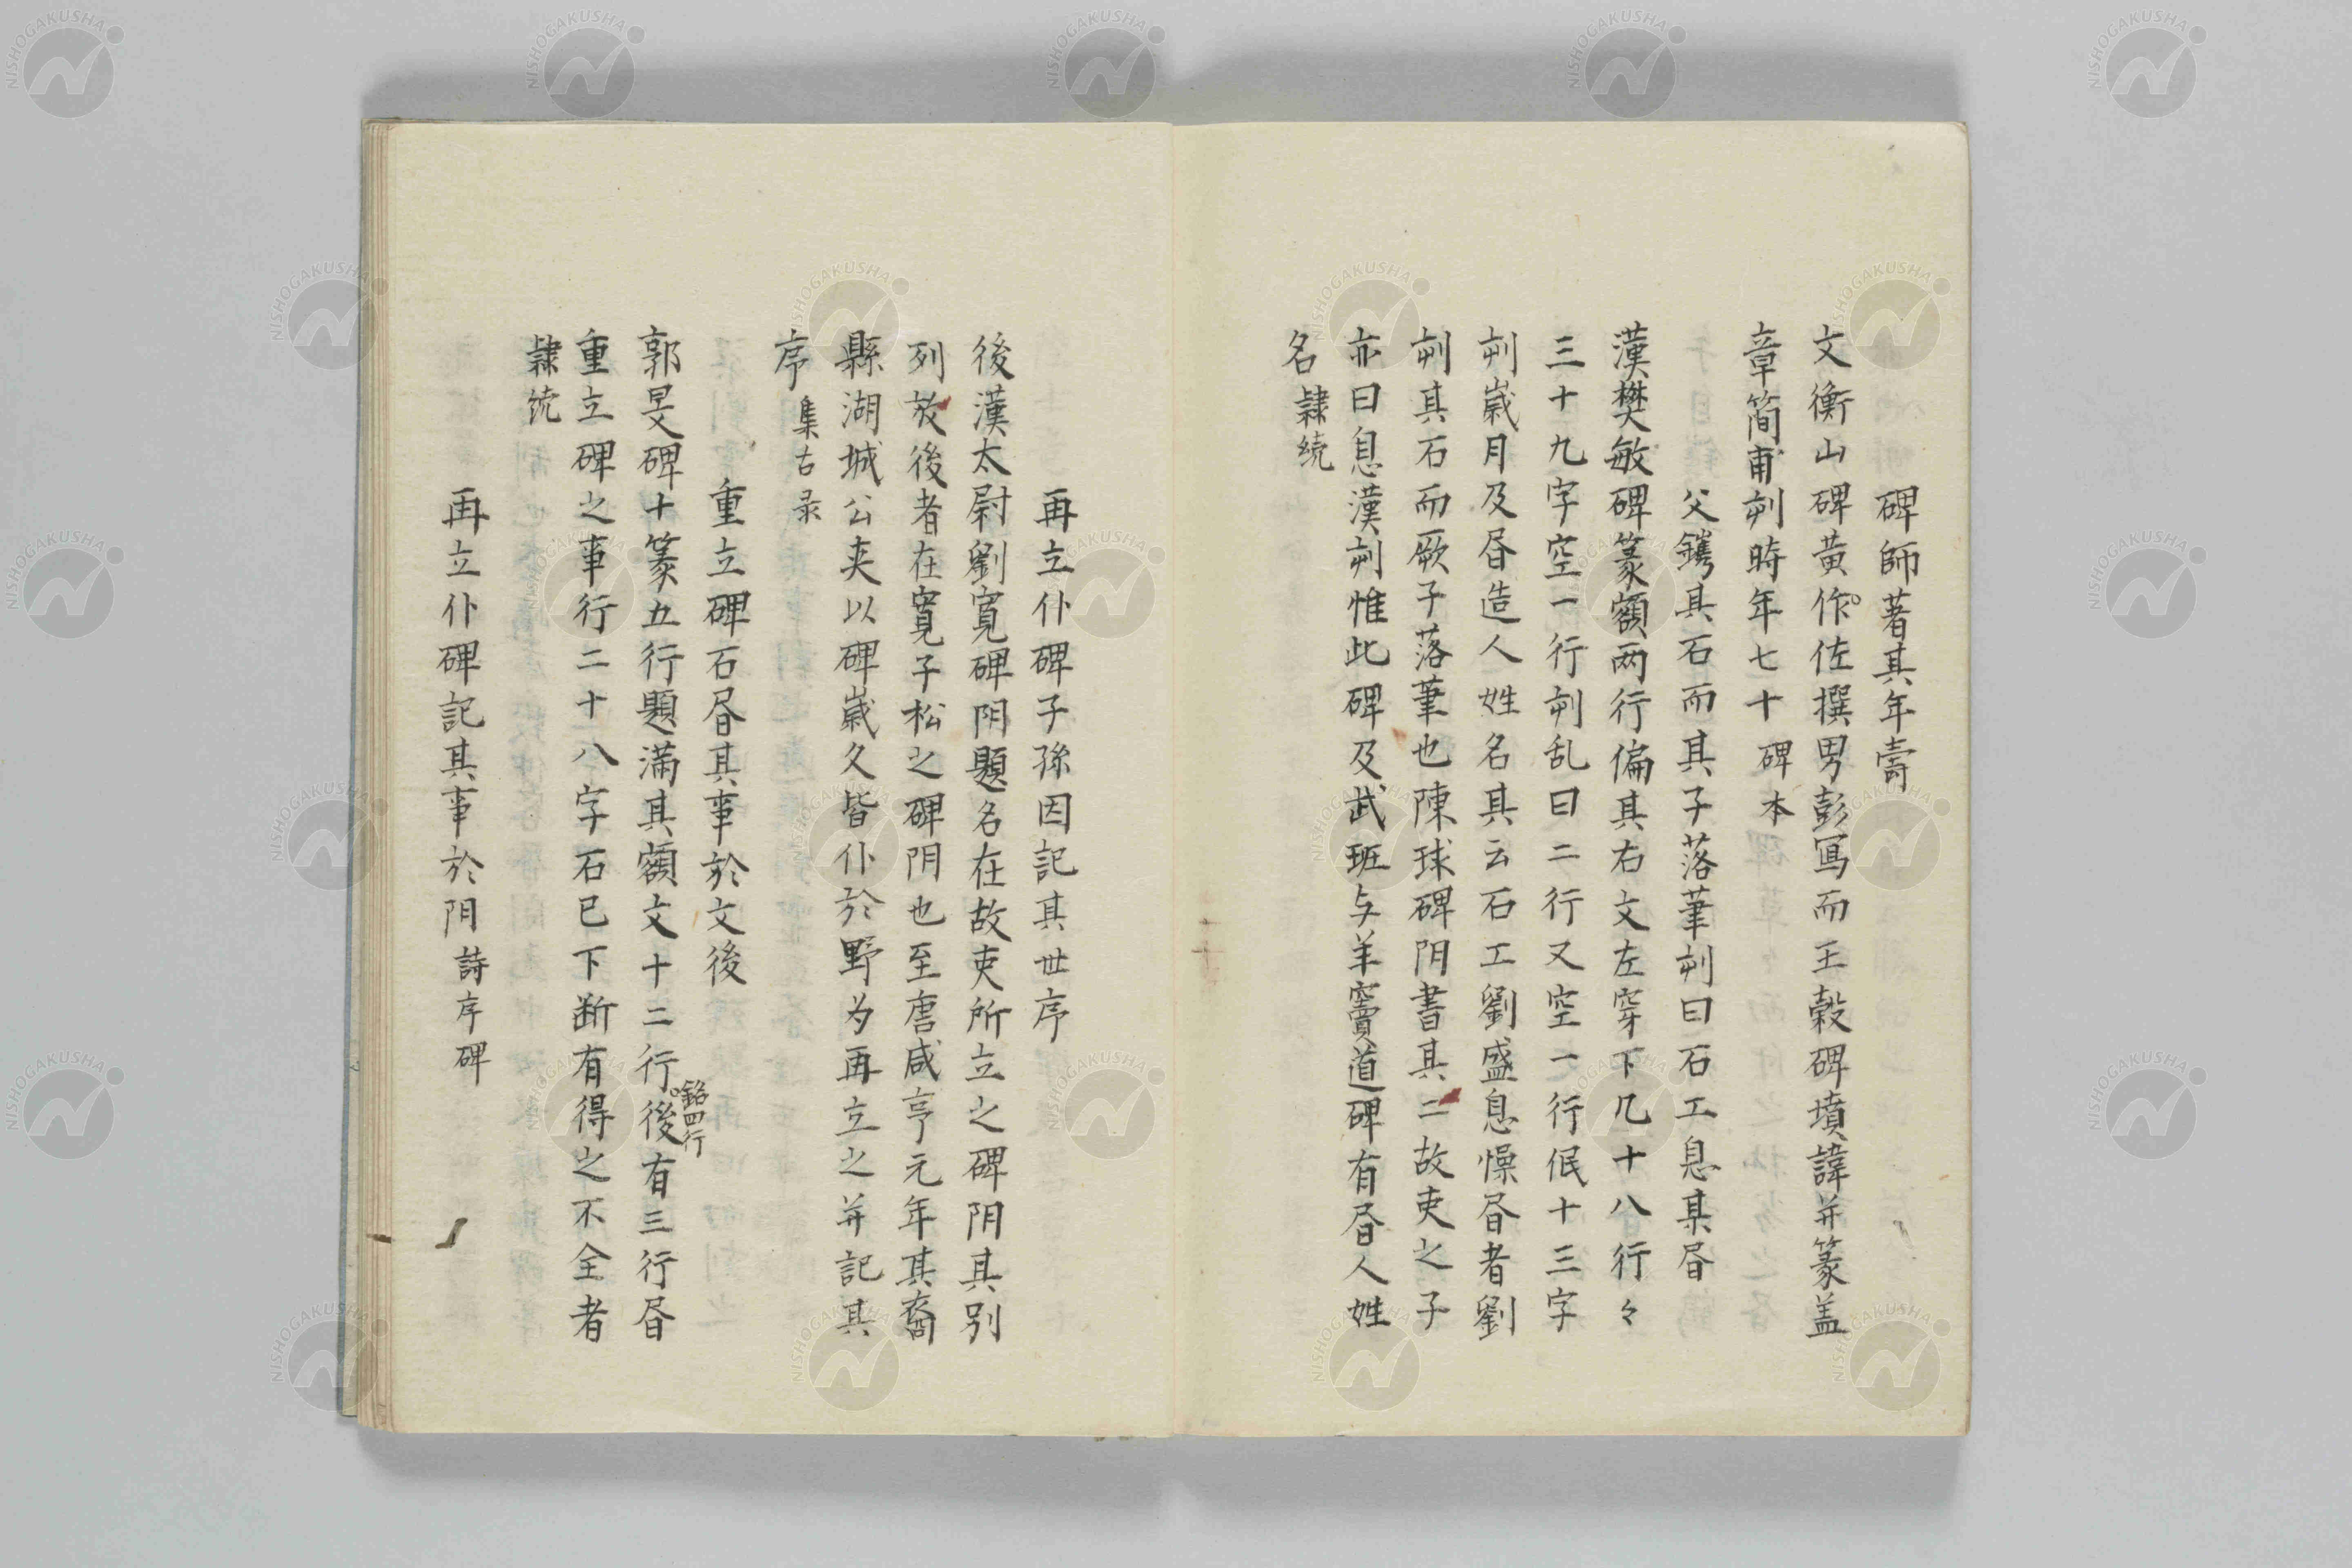 碑師著其年壽
文衡山碑黄作佐撰男彭冩而王穀碑墳諱并篆盖
章簡甫刻時年七十碑本
父鑴其石而其子落筆刻曰石工息某昏
漢樊敏碑篆額两行偏其右文左穿下几十八行々
三十九字空一行刻乱曰二行又空一行低十三字
刻嵗月及昏造人姓名其云石工劉盛息懆昏者劉
刻其石而厥子落筆也陳球碑阴書其二故吏之子
亦曰息漢刻惟此碑及武班与羊竇道碑有昏人姓
名隷続
再立仆碑子孫因記其世序
後漢太尉劉寛碑阴題名在故吏所立之碑阴其别
列故後者在寛子松之碑阴也至唐咸亨元年其裔
縣湖城公夾以碑嵗久皆仆於野为再立之并記其
序集古录
重立碑石昏其事於文後
郭旻碑十篆五行題滿其額文十二行銘四行後有三行昏
重立碑之事行二十八字石已下断有得之不全者
隷続
再立仆碑記其事於阴詩序碑
NISHOGAKUSHA